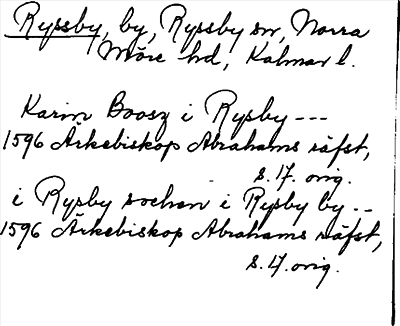 Ryssby, by, Ryssby sn, Norra
Möre hd, Kalmar l.
Karin Boosz i Rysby ---
1596 Ärkebiskop Abrahams räfst,
s. 17. orig.
i Rysby sochen i Rysby by --
1596 Ärkebiskop Abrahams räfst,
s. 17. orig.